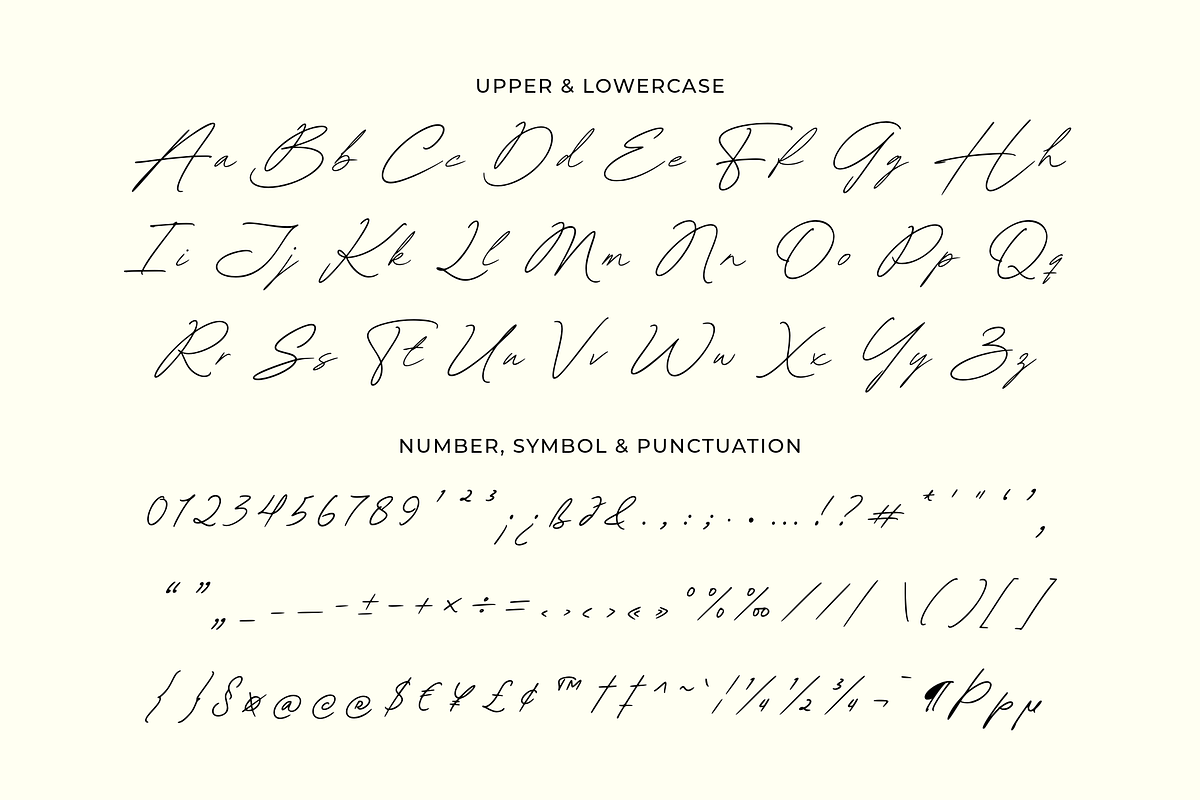 UPPER & LOWERCASE
Aa Bb Cc Dd Ee Ff Gg Hh
Ii Jj Kk Ll Mm Nn Oo Pp Qq
Rr Ss Tt Uu Vv Ww Xx Yy Zz
NUMBER, SYMBOL & PUNCTUATION
0123456789¹²³¡¿ß∂&.,:;·•…!?#*'"‘’‚
“”„_-—-±−+×÷=‹›<>«»°%‰///|\()[]
{}§¤@©®$€¥£¢™†‡^~`¦¼½¾¬¯¶Þþµ